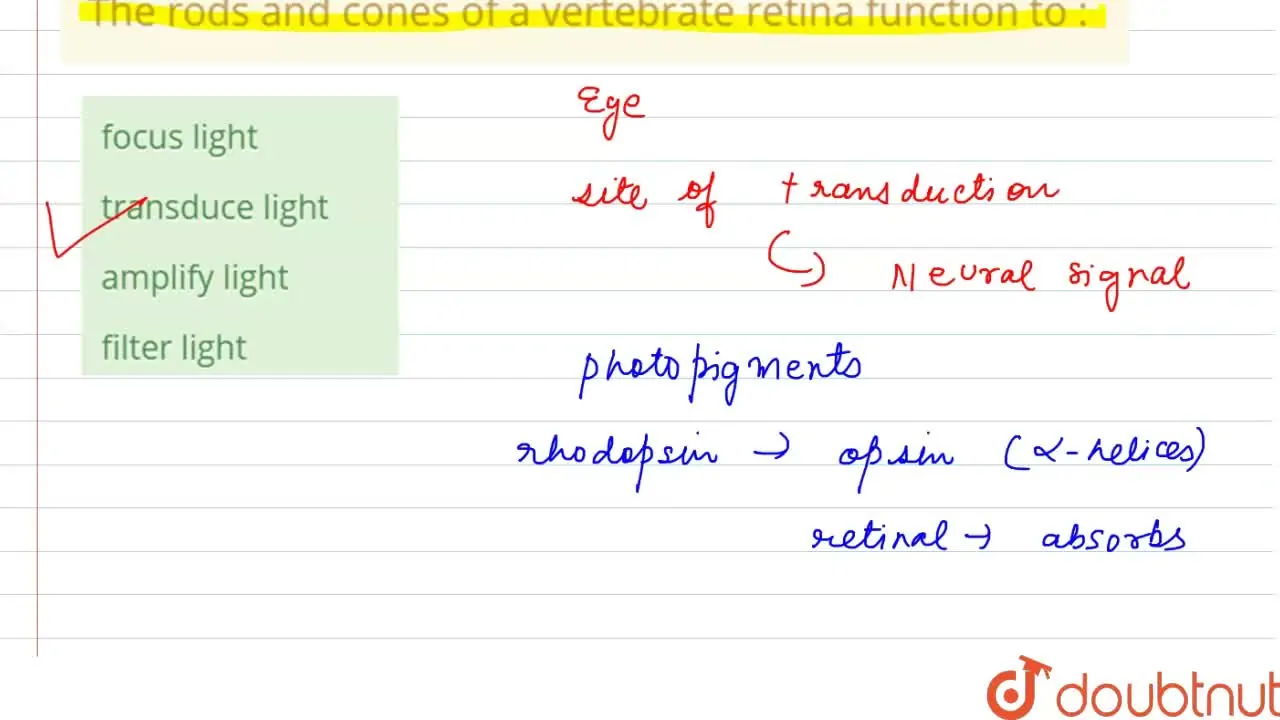 The rods and cones of a vertebrate retina function to :
focus light
transduce light
amplify light
filter light
Eye
site of transduction
Neural signal
photopigments
rhodopsin → opsin (α-helices)
retinal → absorbs
doubtnut